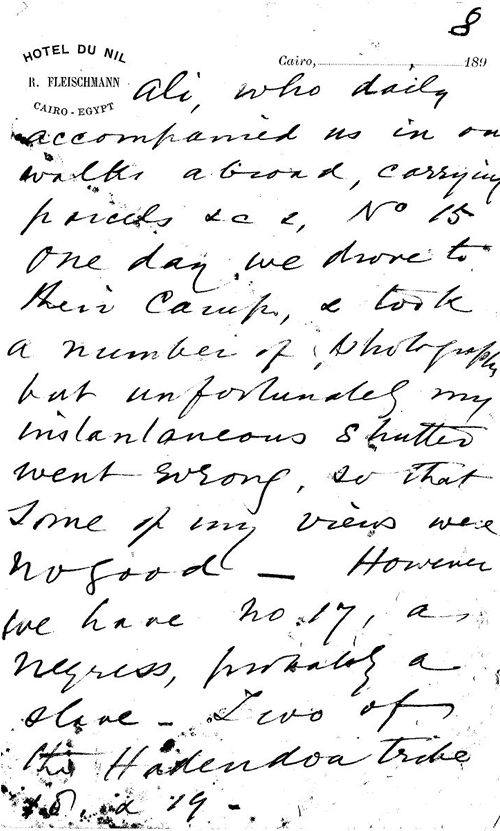 8
HOTEL DU NIL
R. FLEISCHMANN
CAIRO - EGYPT
Cairo, 189
Ali, who daily
accompanied us in our
walks abroad, carrying
parcels &c &, No 15
One day we drove to
their Camp, & took
a number of photographs
but unfortunately my
instantaneous shutter
went wrong, so that
some of my views were
no good — However
we have no. 17, a
negress, probably a
slave - Two of
the Hadendoa tribe
18, & 19 -